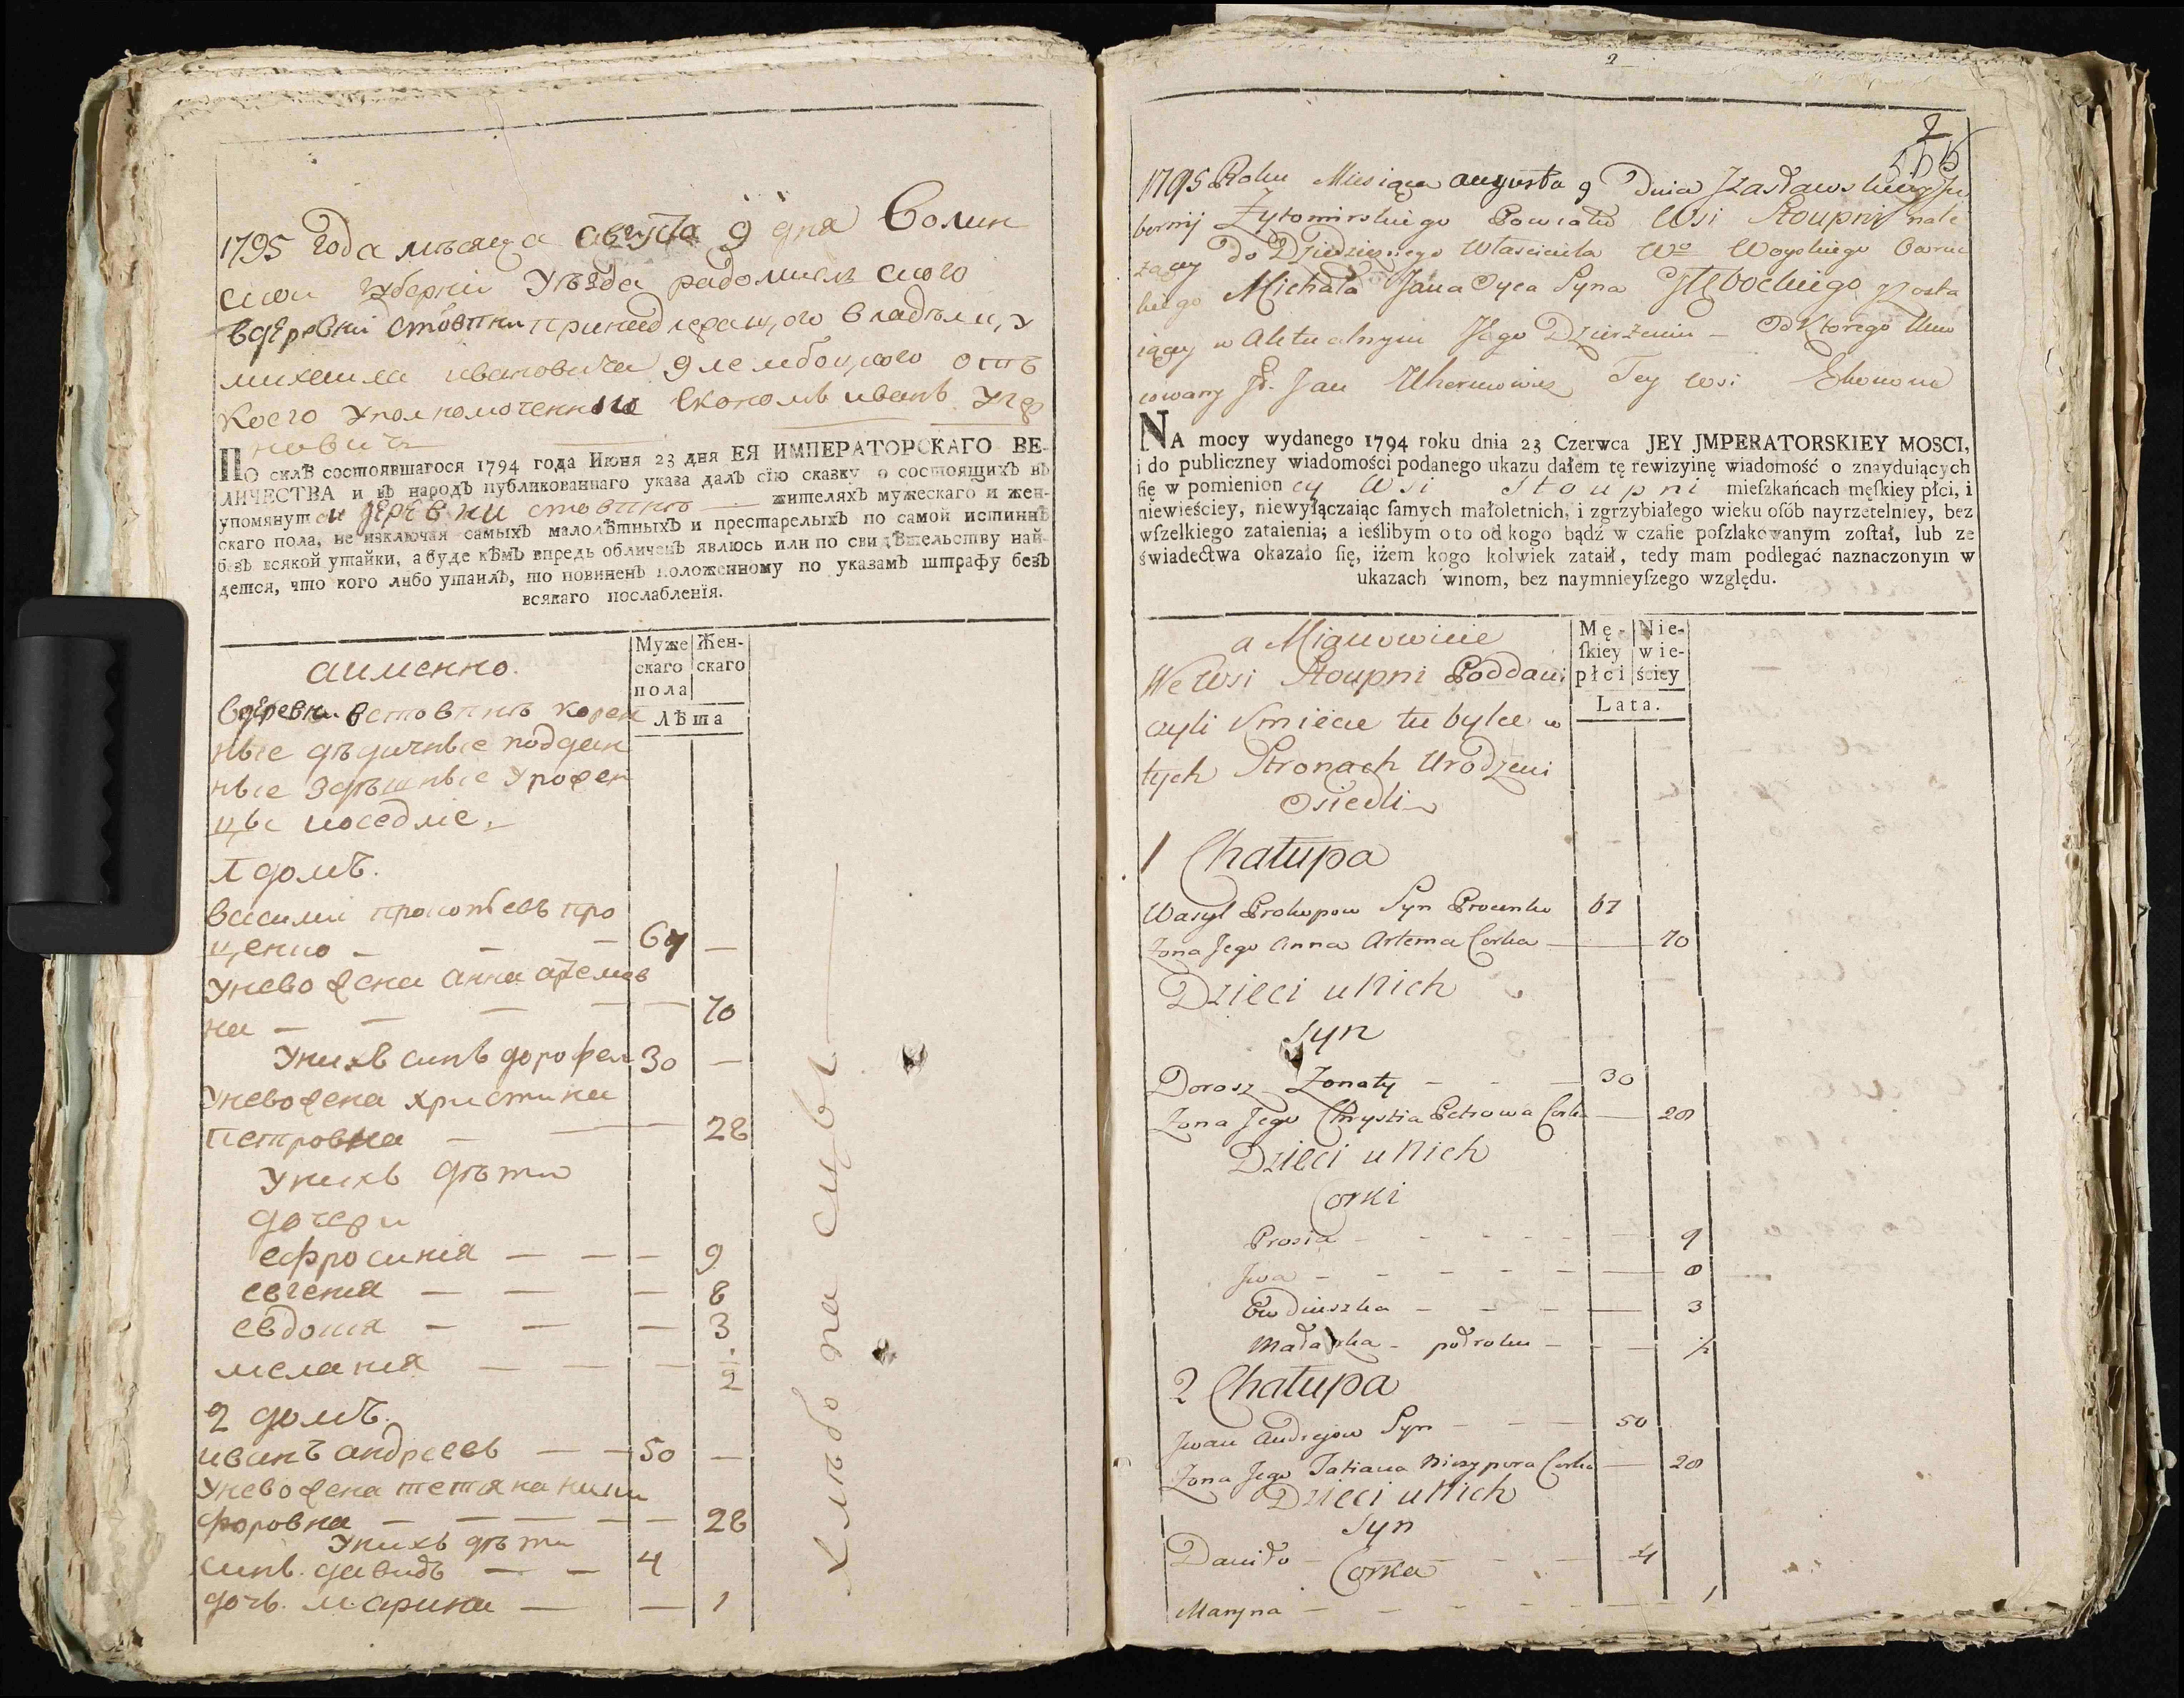 1795 года мѣсяца августа 9 дня Волин
ской губерніи Уѣзда радомисльского
вдеревни стовпни принадлежащого владѣлцу
михаила ивановича глембоцкого отъ
коего уполномоченный Економъ иванъ
новичъ
ПО силѣ состоявшагося 1794 года Июня 23 дня ЕЯ ИМПЕРАТОРСКАГО ВЕ-
ЛИЧЕСТВА и въ народъ публикованнаго указа далъ сїю сказку о состоящихъ въ
упомянутой деревни стовпнѣ жителяхъ мужескаго и жен-
скаго пола, не изключая самыхъ малолѣтныхъ и престарелыхъ по самой истиннѣ
безъ всякой утайки, а буде кѣмъ впредь обличенъ явлюсь или по свидѣтельству най-
дется, что кого либо утаилъ, то повиненъ положенному по указамъ штрафу безъ
всякаго послабленїя.
аименно.
Муже Жен-
скаго скаго
пола
Лѣта
вдеревни встовпнѣ корен
ные дѣдичные поддан
ные здѣшные урожен
цы иоседлie.
1 домъ.
василий прокопьевъ про
ценко — — — 67 —
унево жена анна артемов
на — — — — 70
унихъ синъ дорофей 30 —
унево жена христина
петровна — — — 28
унихъ дѣти
дочери
ефросиния — — — 9
евгения — — — 8
евдокия — — — 3
мелания — — — 1/2
2 домъ.
иванъ андреевъ — — 50 —
унево жена тетяна ники
форовна — — — — 28
унихъ дѣти
синъ. давидъ — — 4
дочь. марина — — 1
хлѣбопашцы —
2
2
1795 Roku Miesiąca augusta 9 Dnia Jzasławskiey Gu
bernij Żytomirskiego Powiatu Wsi Stoupni nale
żącey do Dziedzicznego Właściciela Wo Woyskiego
kiego Michała Jana Oyca Syna Głębockiego zosta
iącey w Aktualnym Jego Dzierżeniu — Od Ktorego Umo
cowany Jan Uhernowicz Tey wsi Ekonom
NA mocy wydanego 1794 roku dnia 23 Czerwca JEY JMPERATORSKIEY MOSCI,
i do publiczney wiadomości podanego ukazu dałem tę rewizyinę wiadomość o znayduiących
ſię w pomienioney Wsi Stoupni mieſzkańcach męſkiey płci, i
niewieściey, niewyłączaiąc ſamych małoletnich, i zgrzybiałego wieku oſób nayrzetelniey, bez
wſzelkiego zataienia; a ieślibym o to od kogo bądź w czaſie poſzlakowanym zoſtał, lub ze
świadectwa okazało ſię, iżem kogo kolwiek zataił, tedy mam podlegać naznaczonym w
ukazach winom, bez naymnieyſzego względu.
a Mianowicie
Mę- Nie-
ſkiey wie-
płci ściey
Lata.
We Wsi Stoupni Poddani
czyli Kmiecie tu bylce w
tych Stronach Urodzeni
Osiedli
1 Chałupa
Wasyl Prokopow Syn Procenko 67
Zona Jego Anna Artema Corka — 70
Dzieci u Nich
Syn
Dorosz Zonaty — — — 30
Zona Jego Chrystia Petrowa Corka — 28
Dzieci u Nich
Corki
Prosia — — — — — 9
Jwa — — — — — 8
Ewdiuszka — — — — 3
Małaszka — poł roku — — 1/2
2 Chałupa
Jwan Andrejow Syn — — — 50
Zona Jego Tatiana Niczypora Corka — 28
Dzieci u Nich
Syn
Daniło — — — 4
Corka
Maryna — — — — — 1